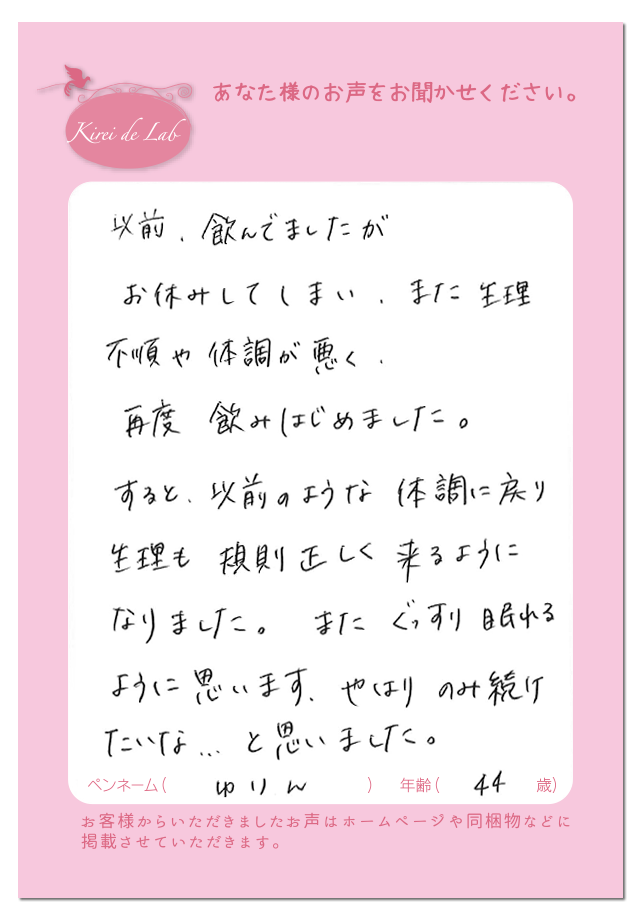 あなた様のお声をお聞かせください。
Kirei de Lab
以前、飲んでましたが
お休みしてしまい、また生理
不順や体調が悪く、
再度 飲みはじめました。
すると、以前のような 体調に戻り
生理も 規則正しく 来るように
なりました。 また ぐっすり眠れる
ように思います、やはり のみ続け
たいな… と思いました。
ペンネーム( ゆりん ) 年齢( 44 歳)
お客様からいただきましたお声はホームページや同梱物などに
掲載させていただきます。